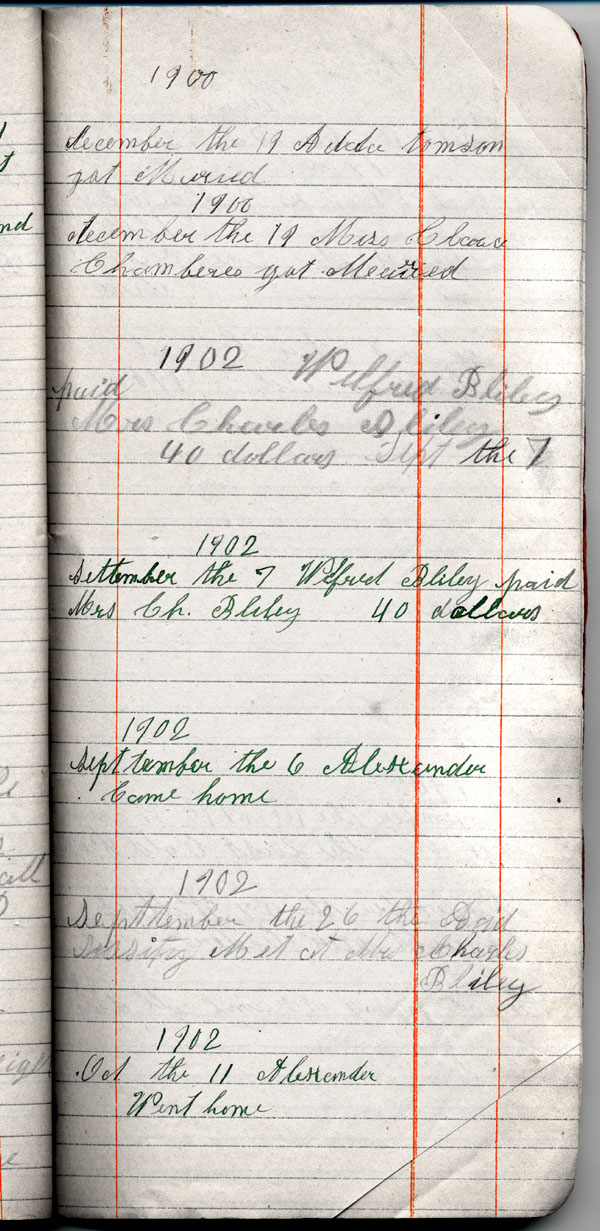 1900
december the 19 Adda tomson
got Murred
1900
december the 19 Miss
Chamberes got Meurred
1902 Wilfred Bliley
paid
Mrs Charles Bliley
40 dollars Sept the 7
1902
settember the 7 Wilfred Bliley paid
Mrs Ch. Bliley 40 dollars
1902
september the 6 Alexander
Come home
1902
Septtember the 26 the
Met at Mr Charles
Bliley
1902
Oct the 11 Alexander
Went home